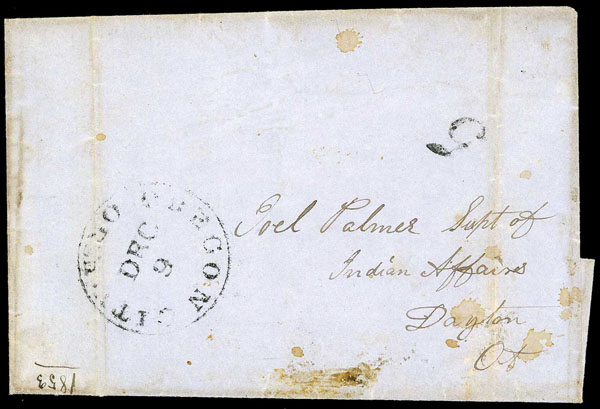 5
OREGON CITY Ogo
DEC
9
Joel Palmer Supt of
Indian Affairs
Dayton
OT
1853